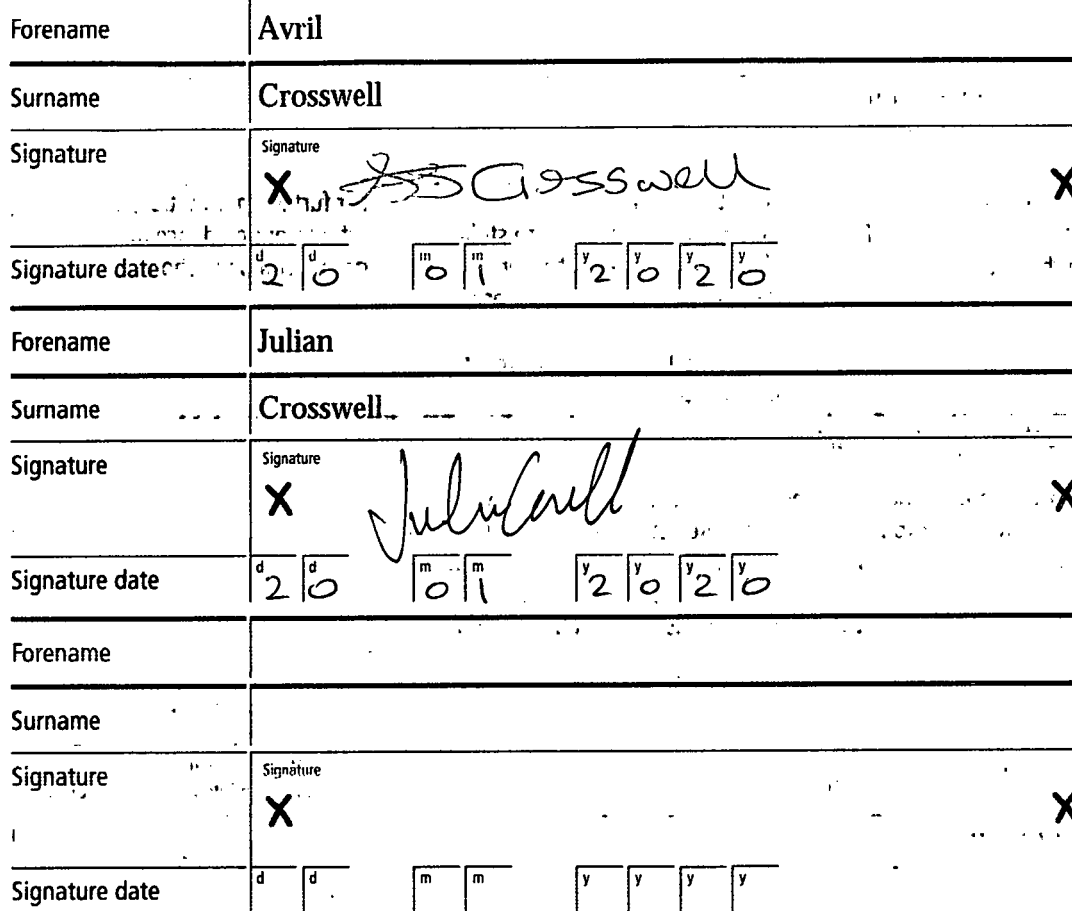 Forename Avril
Surname Crosswell
Signature Signature
X Crosswell X
Signature date d2 d0 m0 m1 y2 y0 y2 y0
Forename Julian
Surname Crosswell
Signature Signature
X X
Signature date d2 d0 m0 m1 y2 y0 y2 y0
Forename
Surname
Signature Signature
X X
Signature date d d m m y y y y